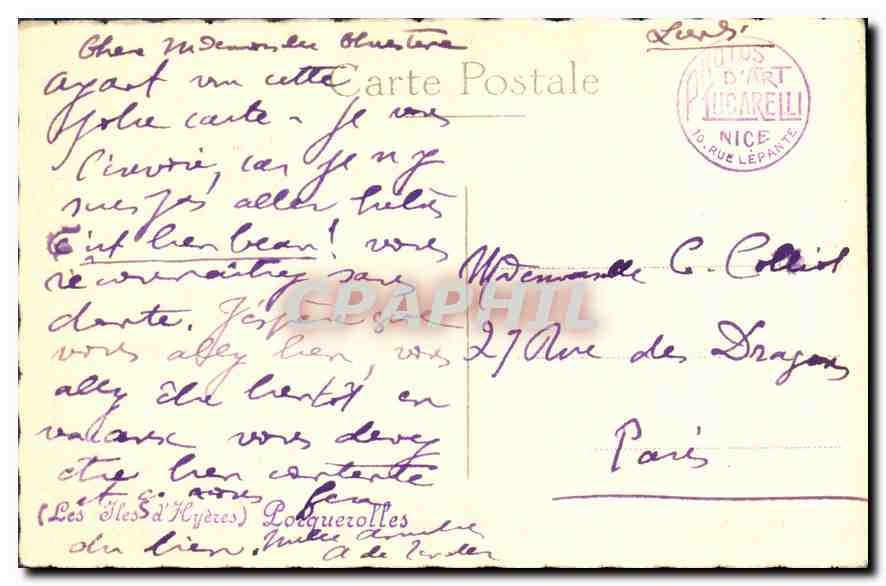 Lundi
Chère Mademoiselle
ayant vu cette
jolie carte - je vous
l'envoie, car je n'y
suis pas aller
C'est bien beau! vous
reconnaîtrez sans
doute. J'espère que
vous allez bien, vous
allez être bientôt en
vacances vous devez
être bien contente
et ça vous fera
du bien. Mille amitiés
A de
Carte Postale
PHOTOS
D'ART
P. LUCARELLI
NICE
10. RUE LÉPANTE
Mademoiselle C. Colliot
27 Rue des Dragons
Paris
(Les Iles d'Hyères) Porquerolles
CPAPHIL